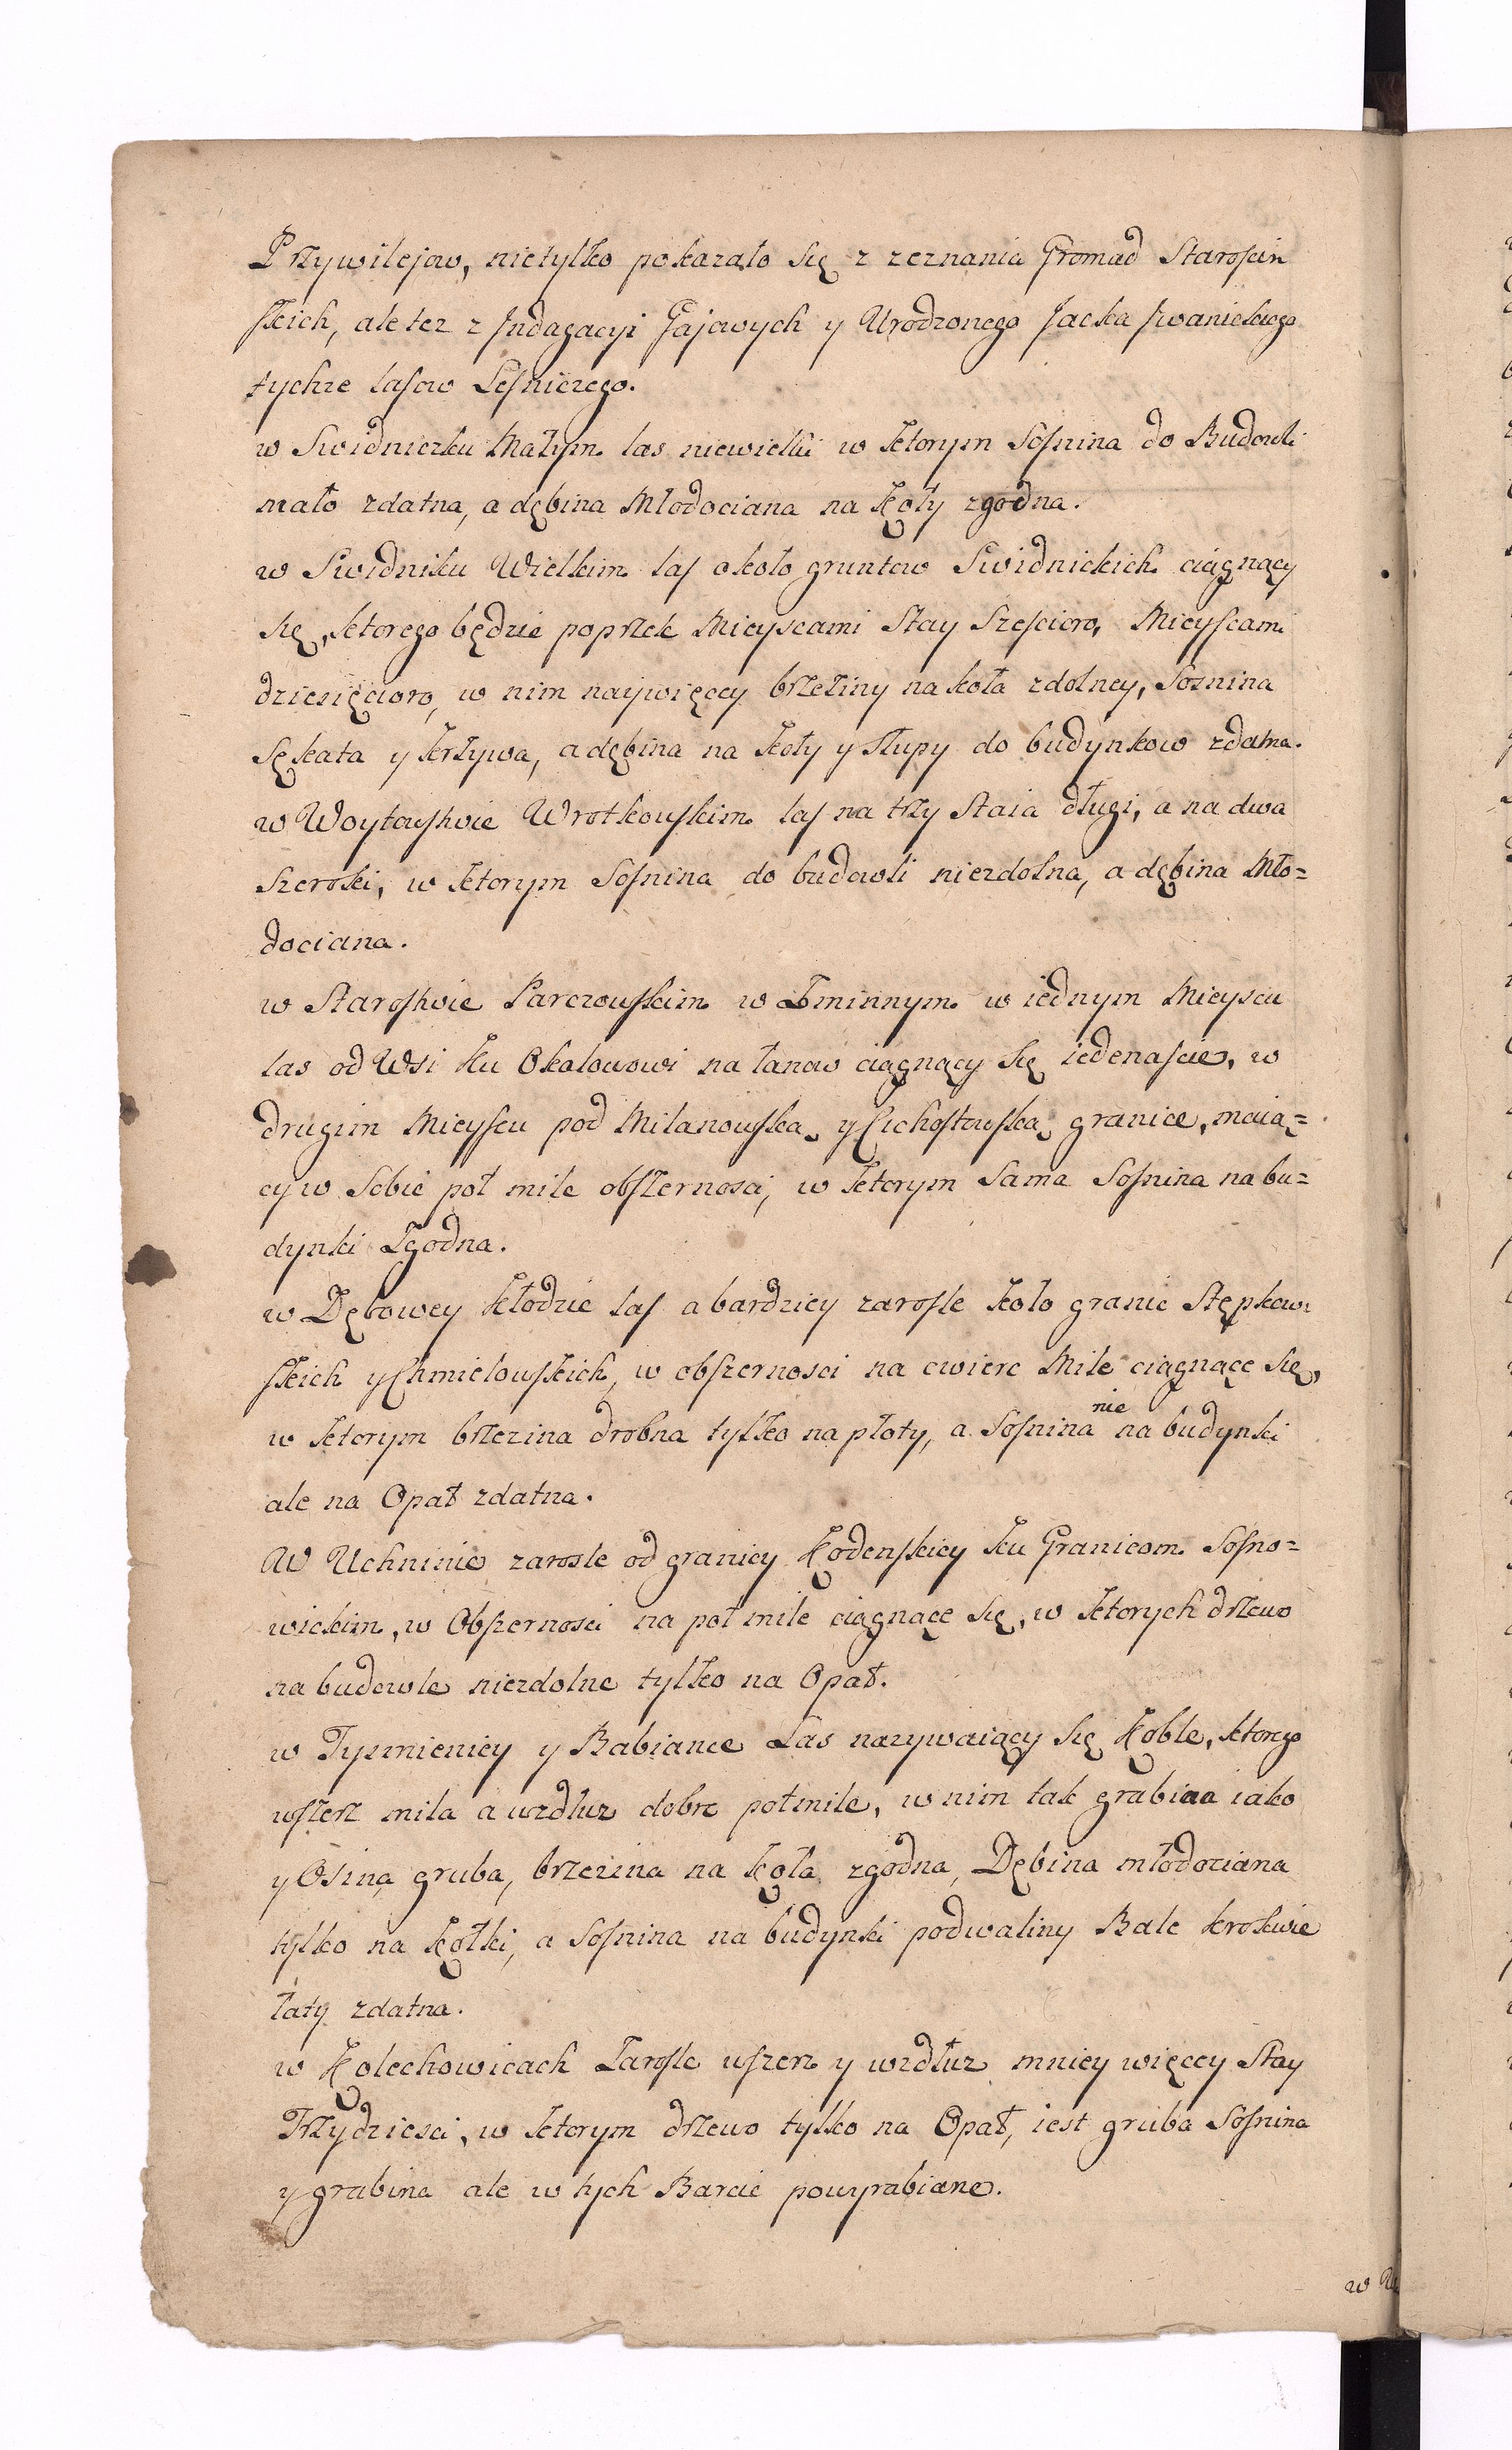 Przywilejow, nietylko pokazało się z zeznania Gromad Starościn
skich, ale tez z Indagacyi Gajowych y Urodzonego Jacka Iwanickiego
tychze lasow Leśniczego.
w Swidniczku Małym las niewielki w ktorym Sosnina do Budowli
mało zdatna, a dębina Młodociana na Koły zgodna.
w Swidniku Wielkim las około gruntow Swidnickich ciągnący
się, ktorego będzie poprzek Mieyscami Stay Sześcioro, Mieyscami
dziesięcioro, w nim naywięcey brzeziny na koła zdolney, Sosnina
Sękata y krzywa, a dębina na koły y słupy do budynkow zdatna.
w Woytowstwie Wrotkowskim las na trzy Staia długi, a na dwa
Szeroki, w ktorym Sosnina do budowli niezdolna, a dębina Mło=
dociana.
w Starostwie Parczowskim w Zminnym w iednym Mieyscu
las od Wsi ku Okalowowi na łanow ciągnący się iedenaście, w
drugim Mieyscu pod Milanowską y Cichostowską granice, maią=
cy w Sobie poł mile obszernosci, w ktorym Sama Sosnina na bu=
dynki Zgodna.
w Dębowey Kłodzie las a bardziey zarosle koło granic Stępkow
skich y Chmielowskich, w obszernosci na cwierc Mile ciągnące się,
w ktorym brzezina drobna tylko na płoty, a Sosnina nie na budynki
ale na Opał zdatna.
W Uchninie zarosle od granicy Kodenskiey ku Granicom Sosno=
wickim, w Obszernosci na poł mile ciągnące się, w ktorych drzewo
na budowle niezdolne tylko na Opał.
w Tysmienicy y Babiance Las nazywaiący się Koble, ktorego
wszerz mila a wzdłuz dobre poł mile, w nim tak grabina iako
y Osina gruba, brzezina na koła zgodna, Dębina młodociana
tylko na kołki, a Sosnina na budynki podwaliny Bale krokwie
łaty zdatna.
w Kolechowicach Zarosle wszerz y wzdłuz mniey więcey Stay
Trzydziesci, w ktorym drzewo tylko na Opał, iest gruba Sosnina
y grabina ale w tych Barcie powyrabiane.